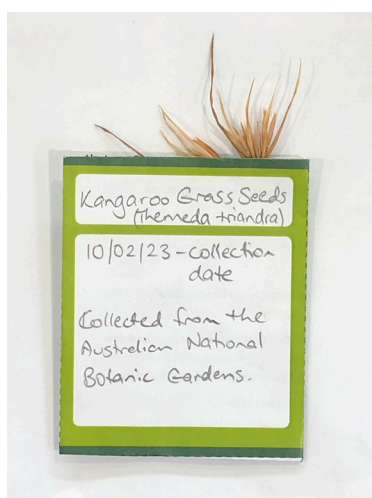 Kangaroo Grass Seeds
(Themeda triandra)
10/02/23 - collection
date
Collected from the
Australian National
Botanic Gardens.